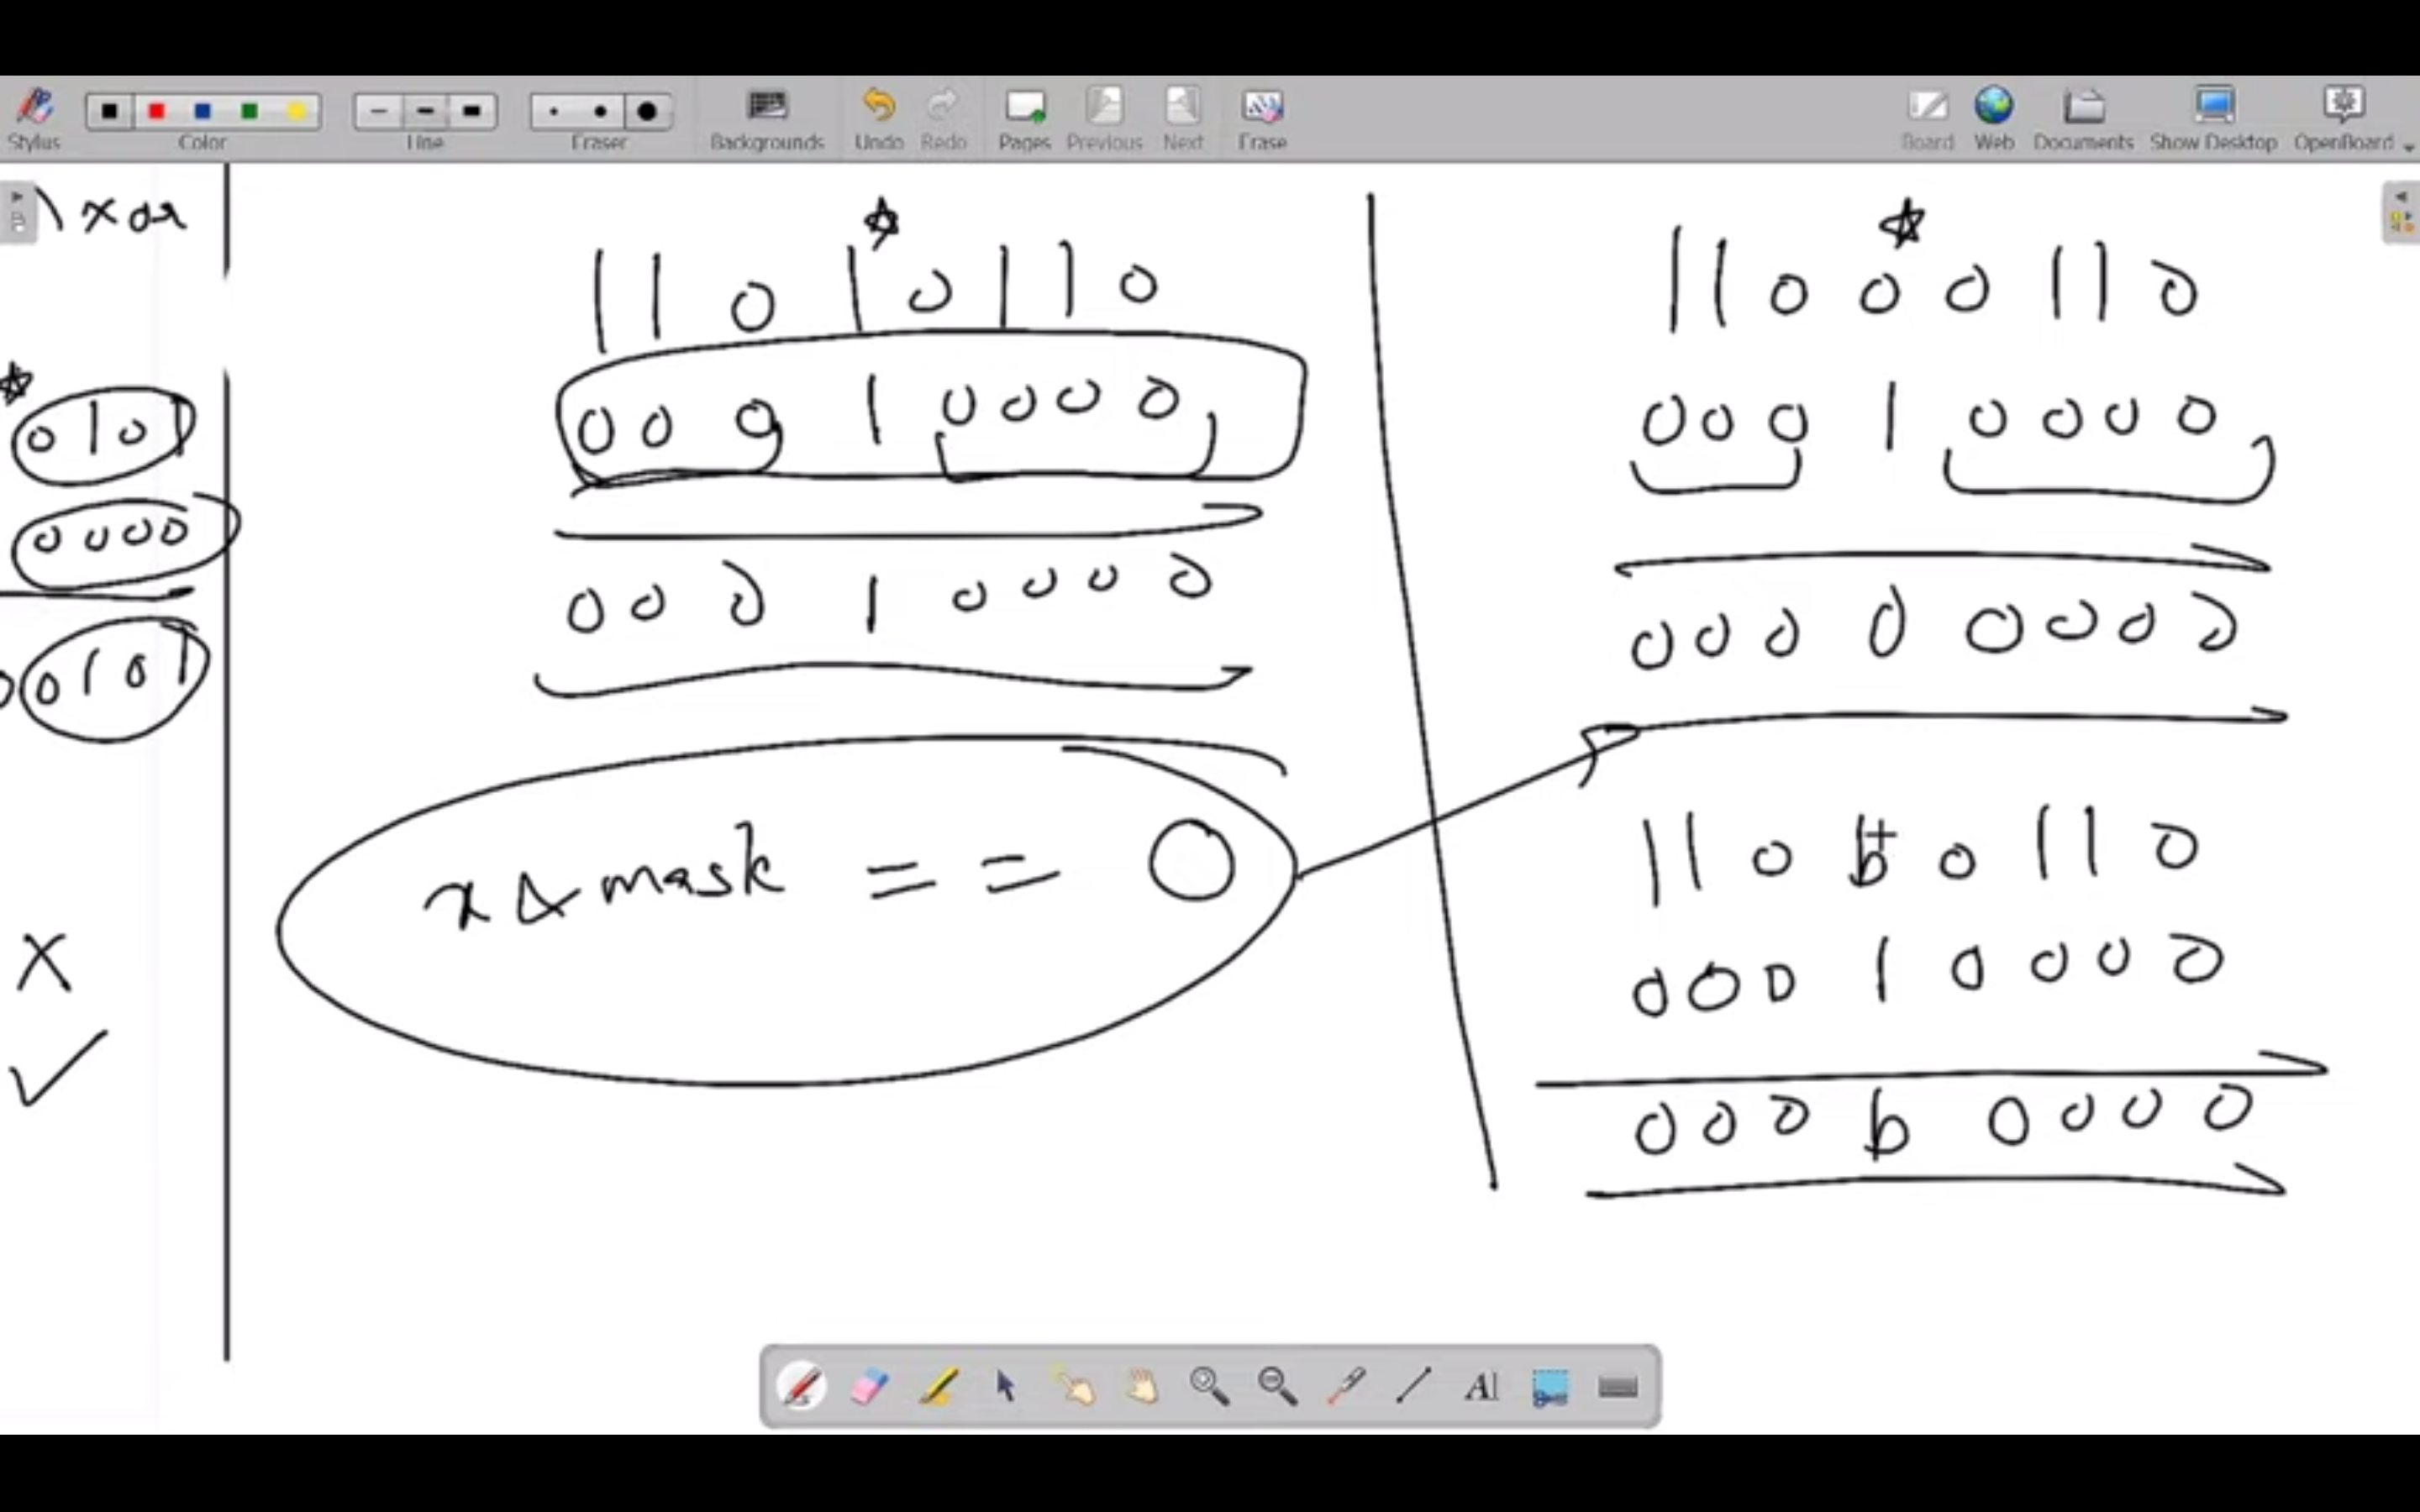 Stylus Color Line Eraser Backgrounds Undo Redo Pages Previous Next Erase Board Web Documents Show Desktop OpenBoard
xor
0101
0000
0101
X
11010110
00010000
00010000
x & mask == 0
11000110
00010000
00000000
110b0110
00010000
000b0000
AI